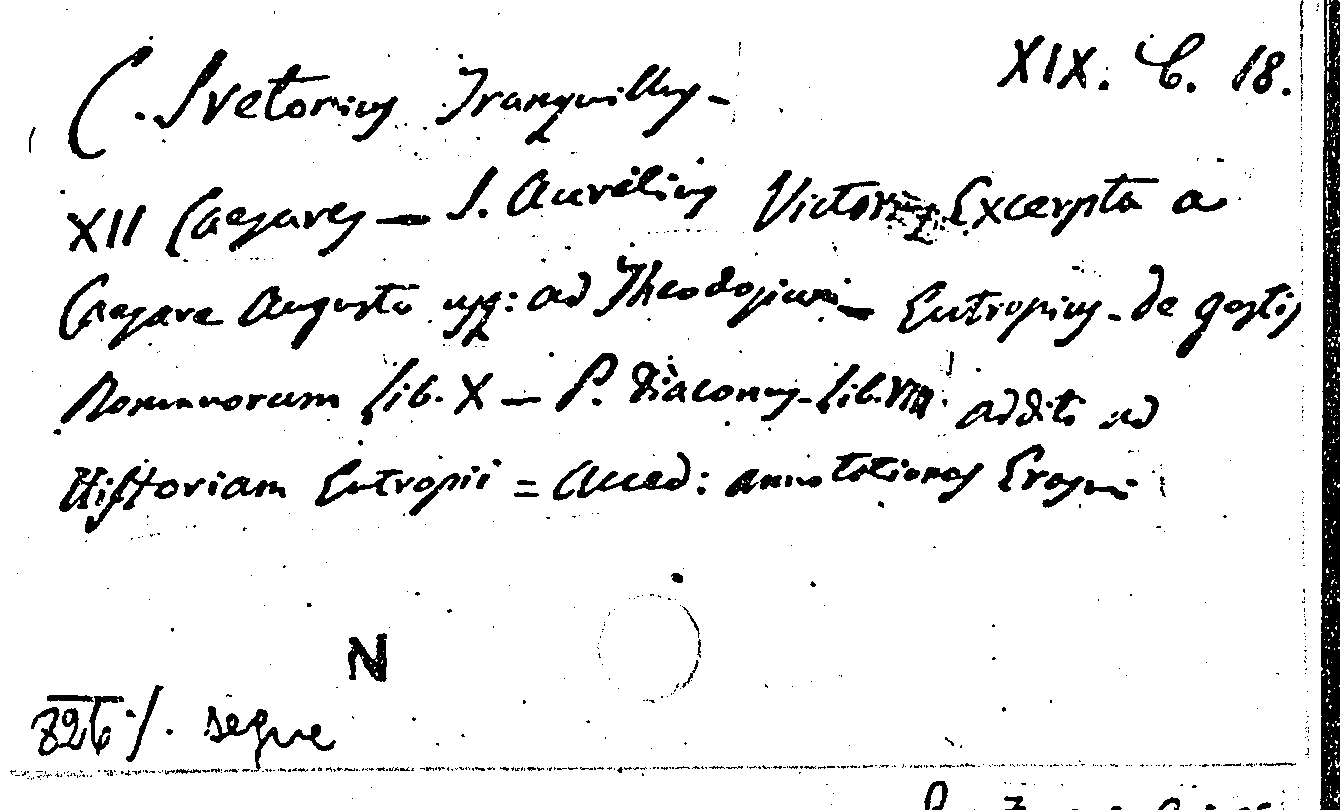 XIX. C. 18.
C. Svetonius Tranquillus -
XII Caesares - S. Aurelius Victoris Excerpta a
Caesare Augusto usq: ad Theodosium - Eutropius - de gestis
Romanorum Lib. X - P. Diaconus - Lib. VIII. additi ad
Historiam Eutropii = Acced: annotationes Erasmi
N
826 /. segue